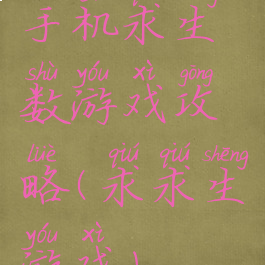 手机求生
shù yóu xì gōng
数游戏攻
lüè qiú qiú shēng
略(求求生
yóu xì
游戏)